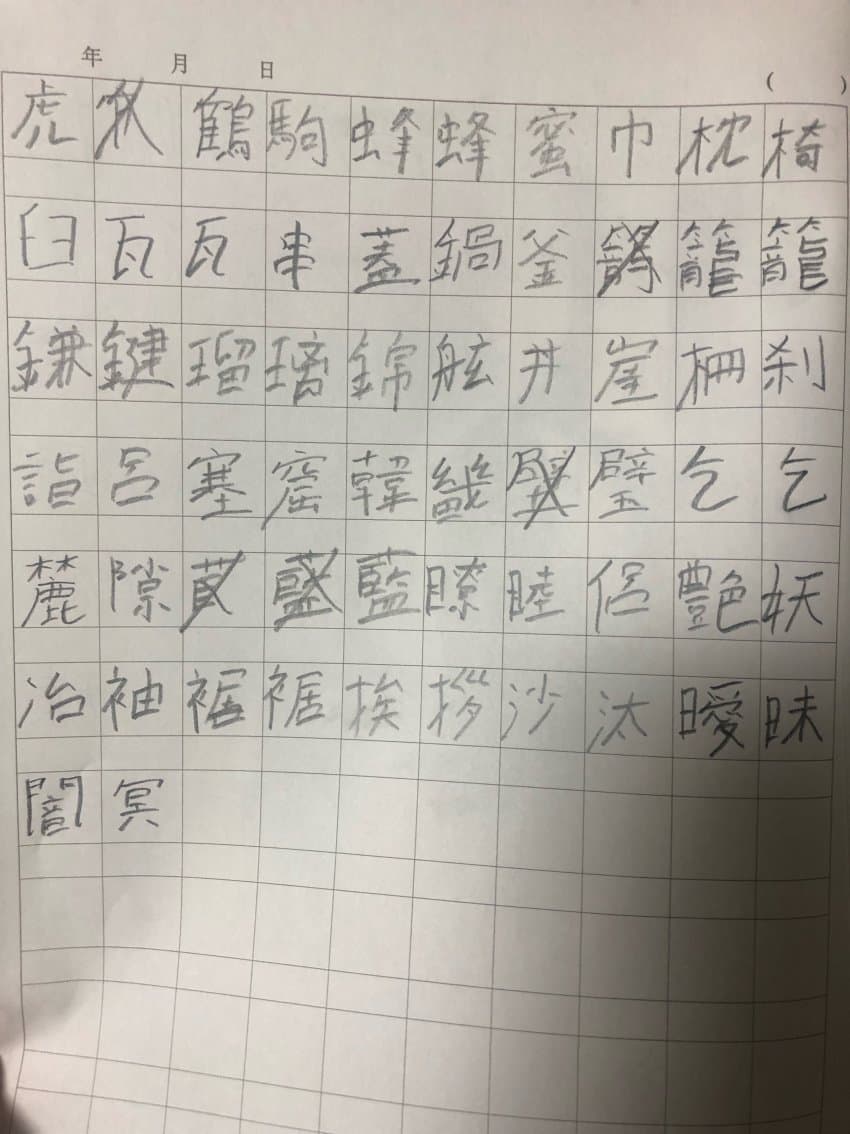 年 月 日 ( )
虎 鶴 駒 蜂 蜂 蜜 巾 枕 椅
臼 瓦 瓦 串 蓋 鍋 釜 籠 籠
鎌 鍵 瑠 璃 錦 舷 丼 崖 柵 刹
詣 呂 塞 窟 韓 畿 璧 乞 乞
麓 隙 藍 瞭 睦 侶 艶 妖
冶 袖 裾 裾 挨 拶 沙 汰 曖 昧
闇 冥